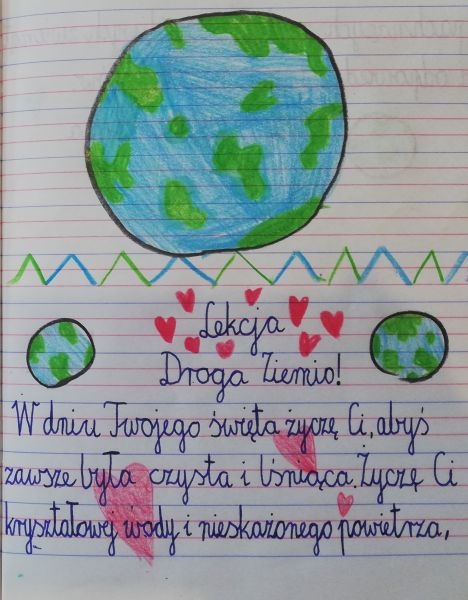 Lekcja
Droga Ziemio!
W dniu Twojego święta życzę Ci, abyś
zawsze była czysta i lśniąca. Życzę Ci
kryształowej wody i nieskażonego powietrza,